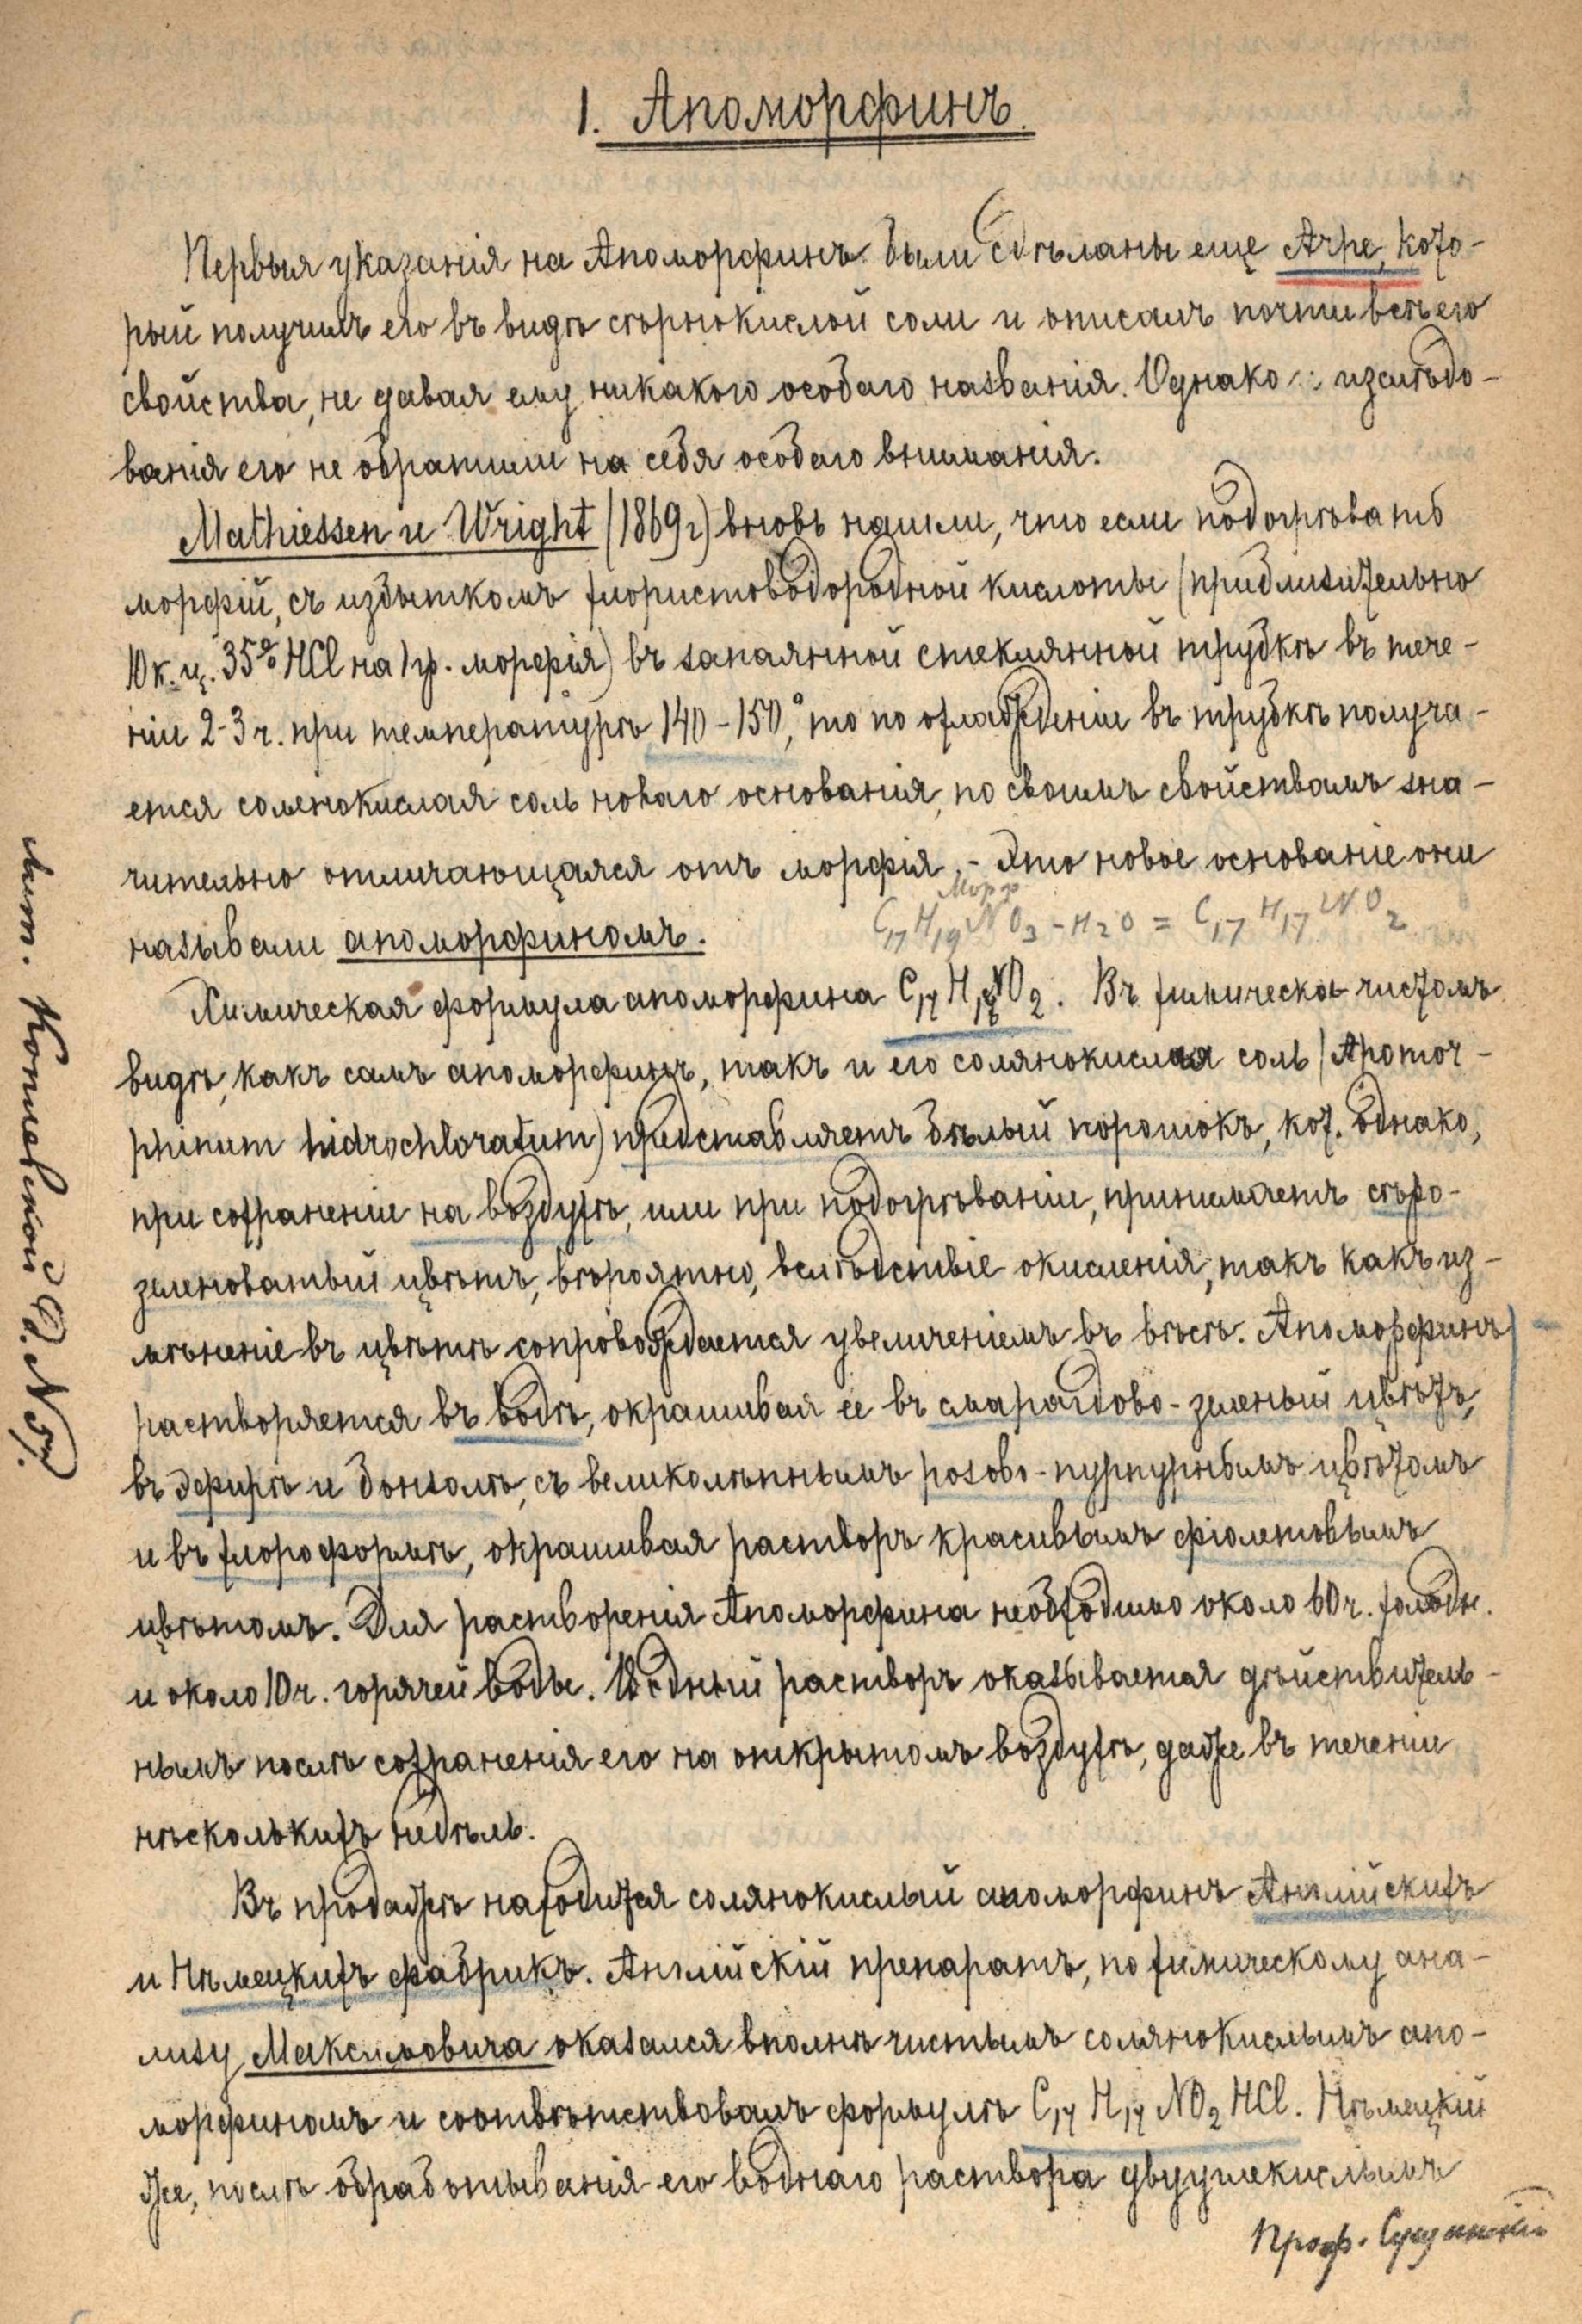 1. Апоморфинъ.
Первыя указанія на Апоморфинъ были сдѣланы еще Арпе, кото-
рый получилъ его въ видѣ сѣрнокислой соли и описалъ почти всѣ его
свойства, не давая ему никакого особаго названія. Однако изслѣдо-
ванія его не обратили на себя особаго вниманія.
Mathiessen и Wright (1869 г) вновь нашли, что если подогрѣвать
морфій, съ избыткомъ хлористоводородной кислоты (приблизительно
10 к. ц. 35% HCl на 1 гр. морфія) въ запаянной стеклянной трубкѣ въ тече-
ніи 2-3 ч. при температурѣ 140-150°, то по охлажденіи въ трубкѣ получа-
ется соленокислая соль новаго основанія, по своимъ свойствамъ зна-
чительно отличающаяся отъ морфія. - Это новое основаніе они
Морф
C17 H19 NO3 - H2O = C17 H17 NO2
называли апоморфиномъ.
Химическая формула апоморфина C17 H17 NO2. Въ химически чистомъ
видѣ, какъ самъ апоморфинъ, такъ и его солянокислая соль (Apomor-
phinum hidrochloratum) представляетъ бѣлый порошокъ, кот. однако,
при сохраненіи на воздухѣ, или при подогрѣваніи, принимаетъ сѣро-
зеленоватый цвѣтъ, вѣроятно, вслѣдствіе окисленія, такъ какъ из-
мѣненіе въ цвѣтѣ сопровождается увеличеніемъ въ вѣсѣ. Апоморфинъ
растворяется въ водѣ, окрашивая ее въ смарагдово-зеленый цвѣтъ,
въ эфирѣ и бензолѣ, съ великолѣпнымъ розово-пурпурнымъ цвѣтомъ
и въ хлороформѣ, окрашивая растворъ красивымъ фіолетовымъ
цвѣтомъ. Для растворенія Апоморфина необходимо около 60 ч. холодн.
и около 10 ч. горячей воды. Водный растворъ оказывается дѣйствитель-
нымъ послѣ сохраненія его на открытомъ воздухѣ, даже въ теченіи
нѣсколькихъ недѣль.
Въ продажѣ находится солянокислый апоморфинъ Англійскихъ
и Нѣмецкихъ фабрикъ. Англійскій препаратъ, по химическому ана-
лизу Максимовича оказался вполнѣ чистымъ солянокислымъ апо-
морфиномъ и соотвѣтствовалъ формулѣ C17 H17 NO2 HCl. Нѣмецкій
же, послѣ обработыванія его воднаго раствора двууглекислымъ
Проф.
Лит. С. № 57.